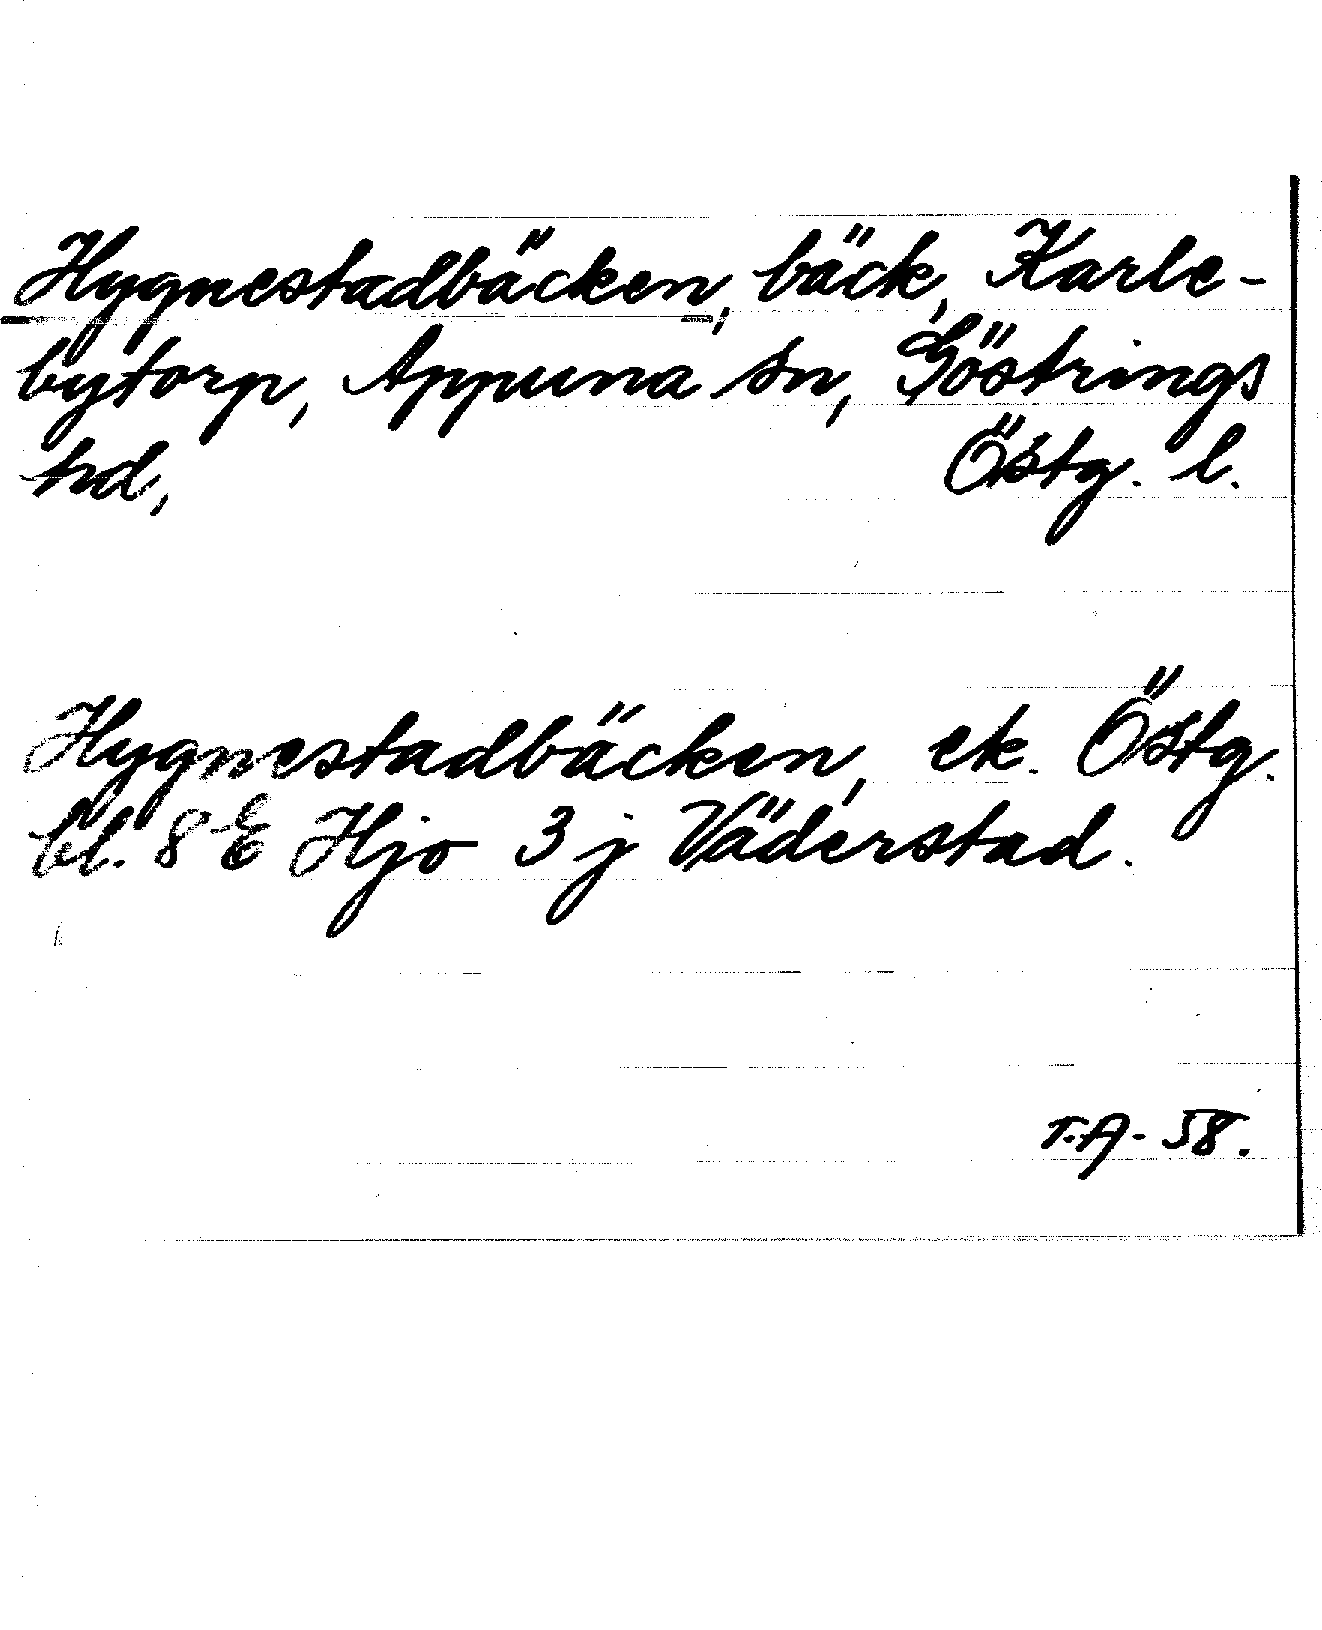 Hygnestadbäcken, bäck, Karle-
bytorp, Appuna sn, Göstrings
hd, Östg. l.
Hygnestadbäcken, ek. Östg.
bl. 8 E Hjo 3 j Väderstad.
T.A- 58.